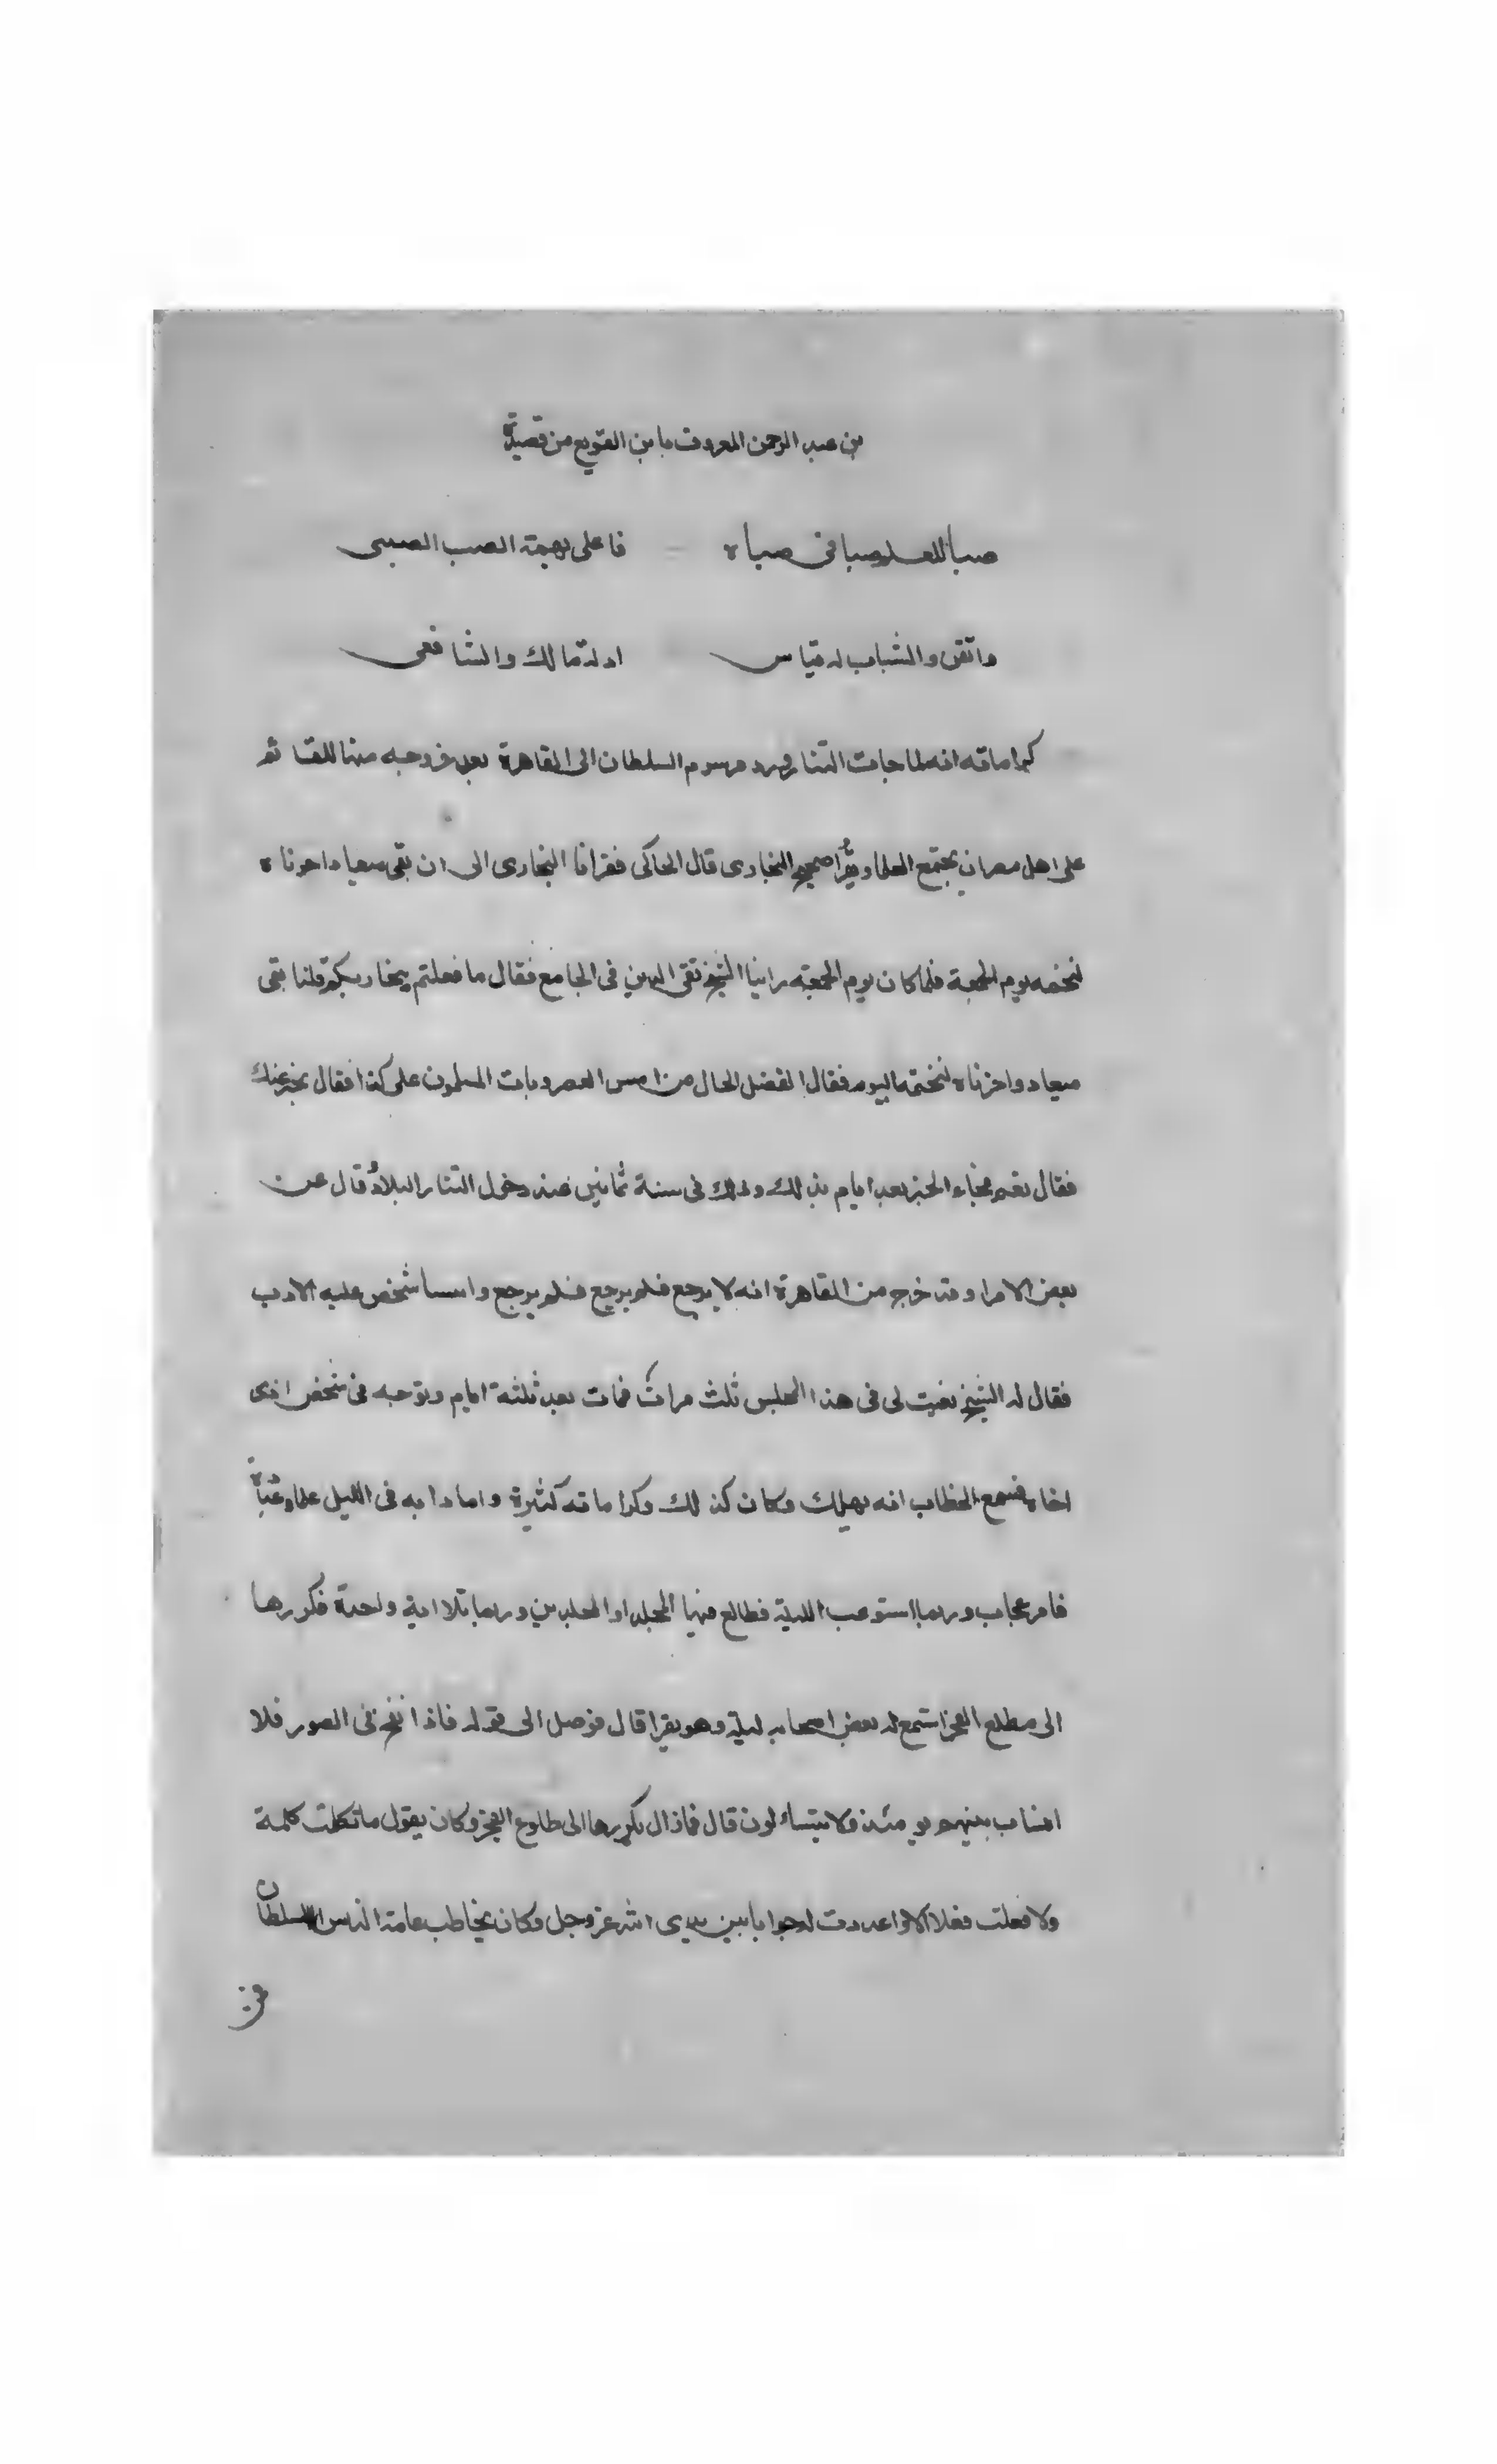 بن عبد الرحمن المعروف بابن القوبع من قصيدة
صبا للعلم صبا فى صباه فاعلى بهمة الصب الصبى
واتقن والشباب له قياس ادلة مالك والشافعى
كراماته انه لما جات التتار ورد مرسوم السلطان الى القاهرة بعد خروجه منها للقائهم
على اهل مصر ان يجتمع العلما ويقرا صحيح البخارى قال الحاكى فقرانا البخارى الى ان بقى ميعاد اخرناه
لنختمه يوم الجمعة فلما كان يوم الجمعة راينا الشيخ تقى الدين فى الجامع فقال ما فعلتم ببخاريكم قلنا بقى
ميعاد واخرناه لنختمه اليوم فقال انفصل الحال من امس العصر وبات المسلمون على كذا فقال نخبر عنك
فقال نعم فجاء الخبر بعد ايام بذلك وذلك فى سنة ثمانين عند دخول التتار البلاد وقال عن
بعض الامرا وقد خرج من القاهرة انه لا يرجع فلم يرجع فلم يرجع واسا شخص عليه الادب
فقال له الشيخ نعيت لى فى هذا المجلس ثلث مرات فمات بعد ثلثة ايام وتوجه فى شخص اذى
اخاه فسمع الخطاب انه يهلك وكان كذلك وكراماته كثيرة واما دابه فى الليل علما وعبادة
فامر عجاب وربما استوعب الليلة فطالع فيها المجلد او المجلدين وربما تلا اية واحدة فكررها
الى مطلع الفجر استمع له بعض اصحابه ليلة وهو يقرا قال فوصل الى قوله فاذا نفخ فى الصور فلا
انساب بينهم يومئذ ولا يتساءلون قال فمازال يكررها الى طلوع الفجر وكان يقول ما تكلمت كلمة
ولا فعلت فعلا الا واعددت له جوابا بين يدى الله عز وجل وكان يخاطب عامة الناس السلطان
فمن